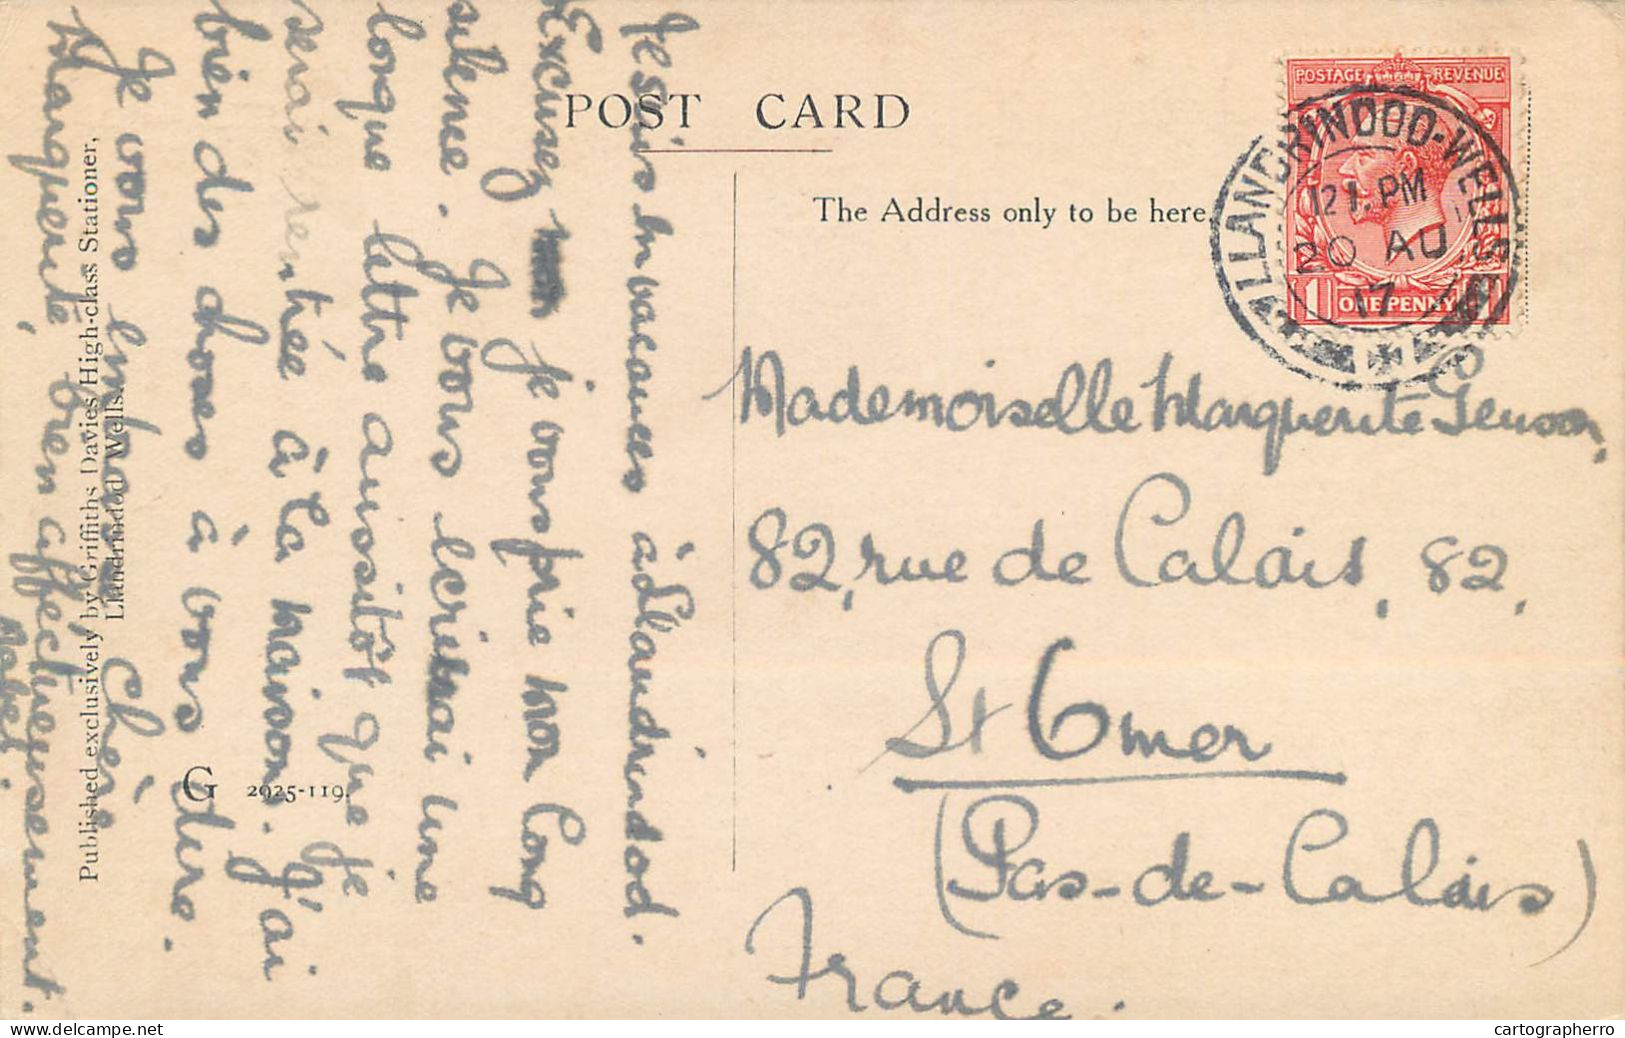 POST CARD
The Address only to be here.
POSTAGE REVENUE
1 ONE PENNY
LLANDRINDOD-WELLS
12 1. PM
20 AU
17
Mademoiselle Marguerite
82, rue de Calais, 82,
St Omer
(Pas-de-Calais)
France.
Je suis en vacances à Llandrindod.
Excusez je vous prie mon long
silence. Je vous écrirai une
longue lettre aussitôt que je
serai rentrée à la maison. J'ai
bien des choses à vous dire.
Je vous embrasse, chère
Marguerite, bien affectueusement.
Published exclusively by Griffiths Davies High-class Stationer,
Llandrindod Wells.
G 2925-119.
cartographerro